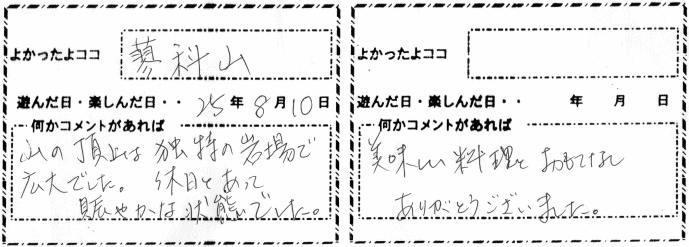 よかったよココ 蓼科山
遊んだ日・楽しんだ日・・ 25年8月10日
何かコメントがあれば
山の頂上は独特の岩場で
広大でした。休日とあって
賑やかな状態でした。
よかったよココ
遊んだ日・楽しんだ日・・ 年 月 日
何かコメントがあれば
美味しい料理と おもてなし
ありがとうございました。